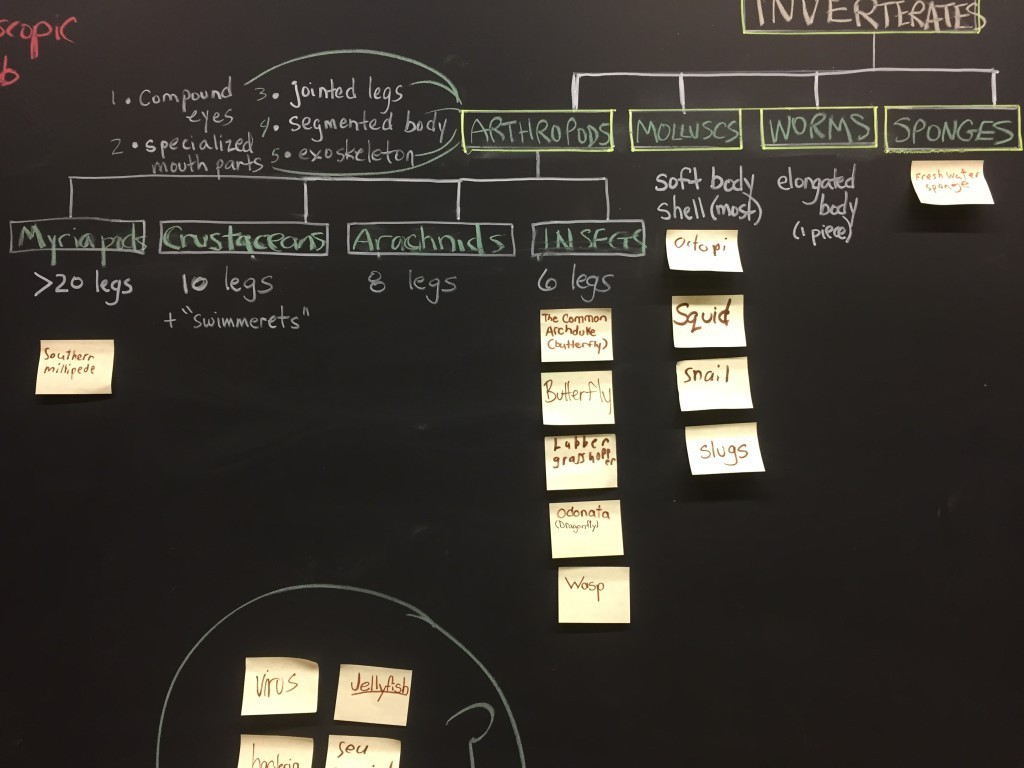 scopic
b
INVERTERATES
1. Compound
eyes
2. specialized
mouth parts
3. jointed legs
4. segmented body
5. exoskeleton
ARTHROPODS
MOLLUSCS
WORMS
SPONGES
soft body
shell (most)
elongated
body
(1 piece)
Freshwater
sponge
Octopi
Squid
Snail
slugs
Myriapids
Crustaceans
Arachnids
INSECTS
>20 legs
10 legs
+ "swimmerets"
8 legs
6 legs
Southern
millipede
The Common
Archduke
(butterfly)
Butterfly
Lubber
grasshopper
Odonata
(Dragonfly)
Wasp
virus
Jellyfish
bacteria
sea
?